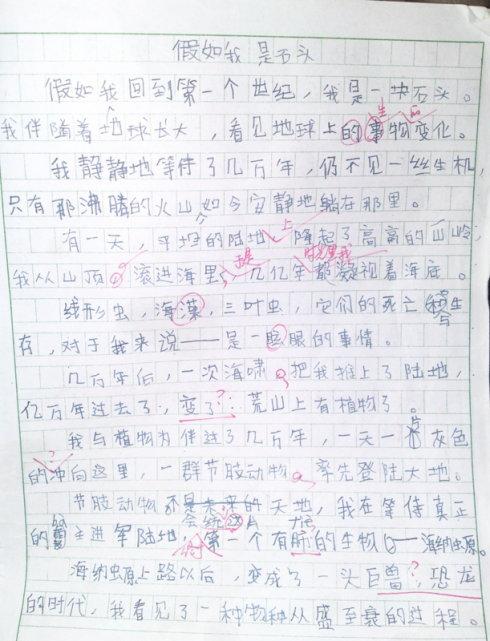 假如我是石头
假如我回到第一个世纪，我是一块石头。
我伴随着地球长大，看见地球上的事物变化。
生 后
我静静地等待了几万年，仍不见一丝生机，
只有那沸腾的火山如今安静地躺在那里。
有一天，平坦的陆地上隆起了高高的山岭，
我从山顶滚进海里，几亿年都凝视着海底。
线形虫，海藻，三叶虫，它们的死亡和生
存，对于我来说——是一眨眼的事情。
几万年后，一次海啸把我推上了陆地，
亿万年过去了，变了？：荒山上有植物了。
我与植物为伴过了几万年，一天一片灰色
的冲向这里，一群节肢动物。率先登陆大地。
节肢动物不是未来的天地，我在等待真正
的 主进军陆地，第一个有脏的生物——海纳虫原。
海纳虫原上路以后，变成了一头巨兽？恐龙
的时代，我看见了一种物种从盛至衰的过程。